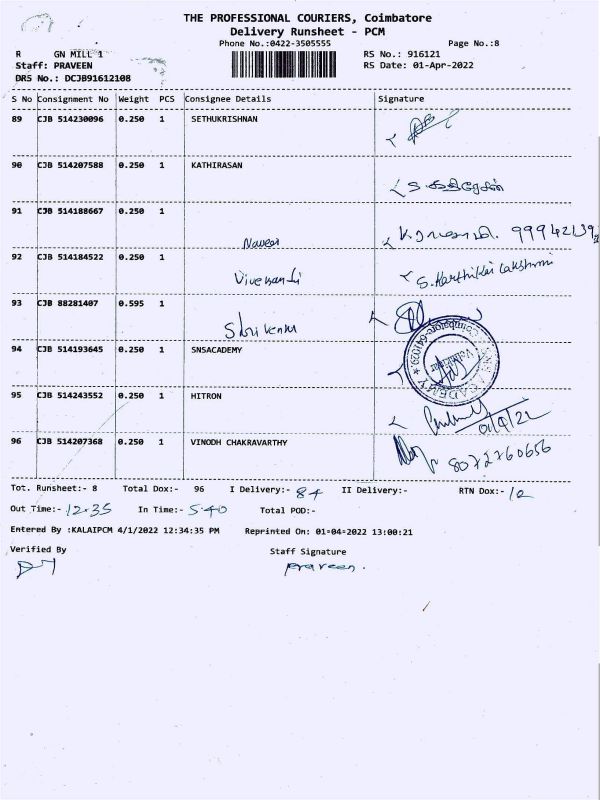 THE PROFESSIONAL COURIERS, Coimbatore
Delivery Runsheet - PCM
Phone No.:0422-3505555 Page No.:8
R GN MILL 1 RS No.: 916121
Staff: PRAVEEN RS Date: 01-Apr-2022
DRS No.: DCJB91612108
S No Consignment No Weight PCS Consignee Details Signature
89 CJB 514230096 0.250 1 SETHUKRISHNAN
90 CJB 514207588 0.250 1 KATHIRASAN
91 CJB 514188667 0.250 1
Naveen
92 CJB 514184522 0.250 1
S. Karthikai Lakshmi
93 CJB 88281407 0.595 1
94 CJB 514193645 0.250 1 SNSACADEMY
95 CJB 514243552 0.250 1 HITRON
01/4/22
96 CJB 514207368 0.250 1 VINODH CHAKRAVARTHY
8072760656
Tot. Runsheet:- 8 Total Dox:- 96 I Delivery:- 84 II Delivery:- RTN Dox:- 12
Out Time:- 12.35 In Time:- 5.40 Total POD:-
Entered By :KALAIPCM 4/1/2022 12:34:35 PM Reprinted On: 01=04=2022 13:00:21
Verified By Staff Signature
praveen.